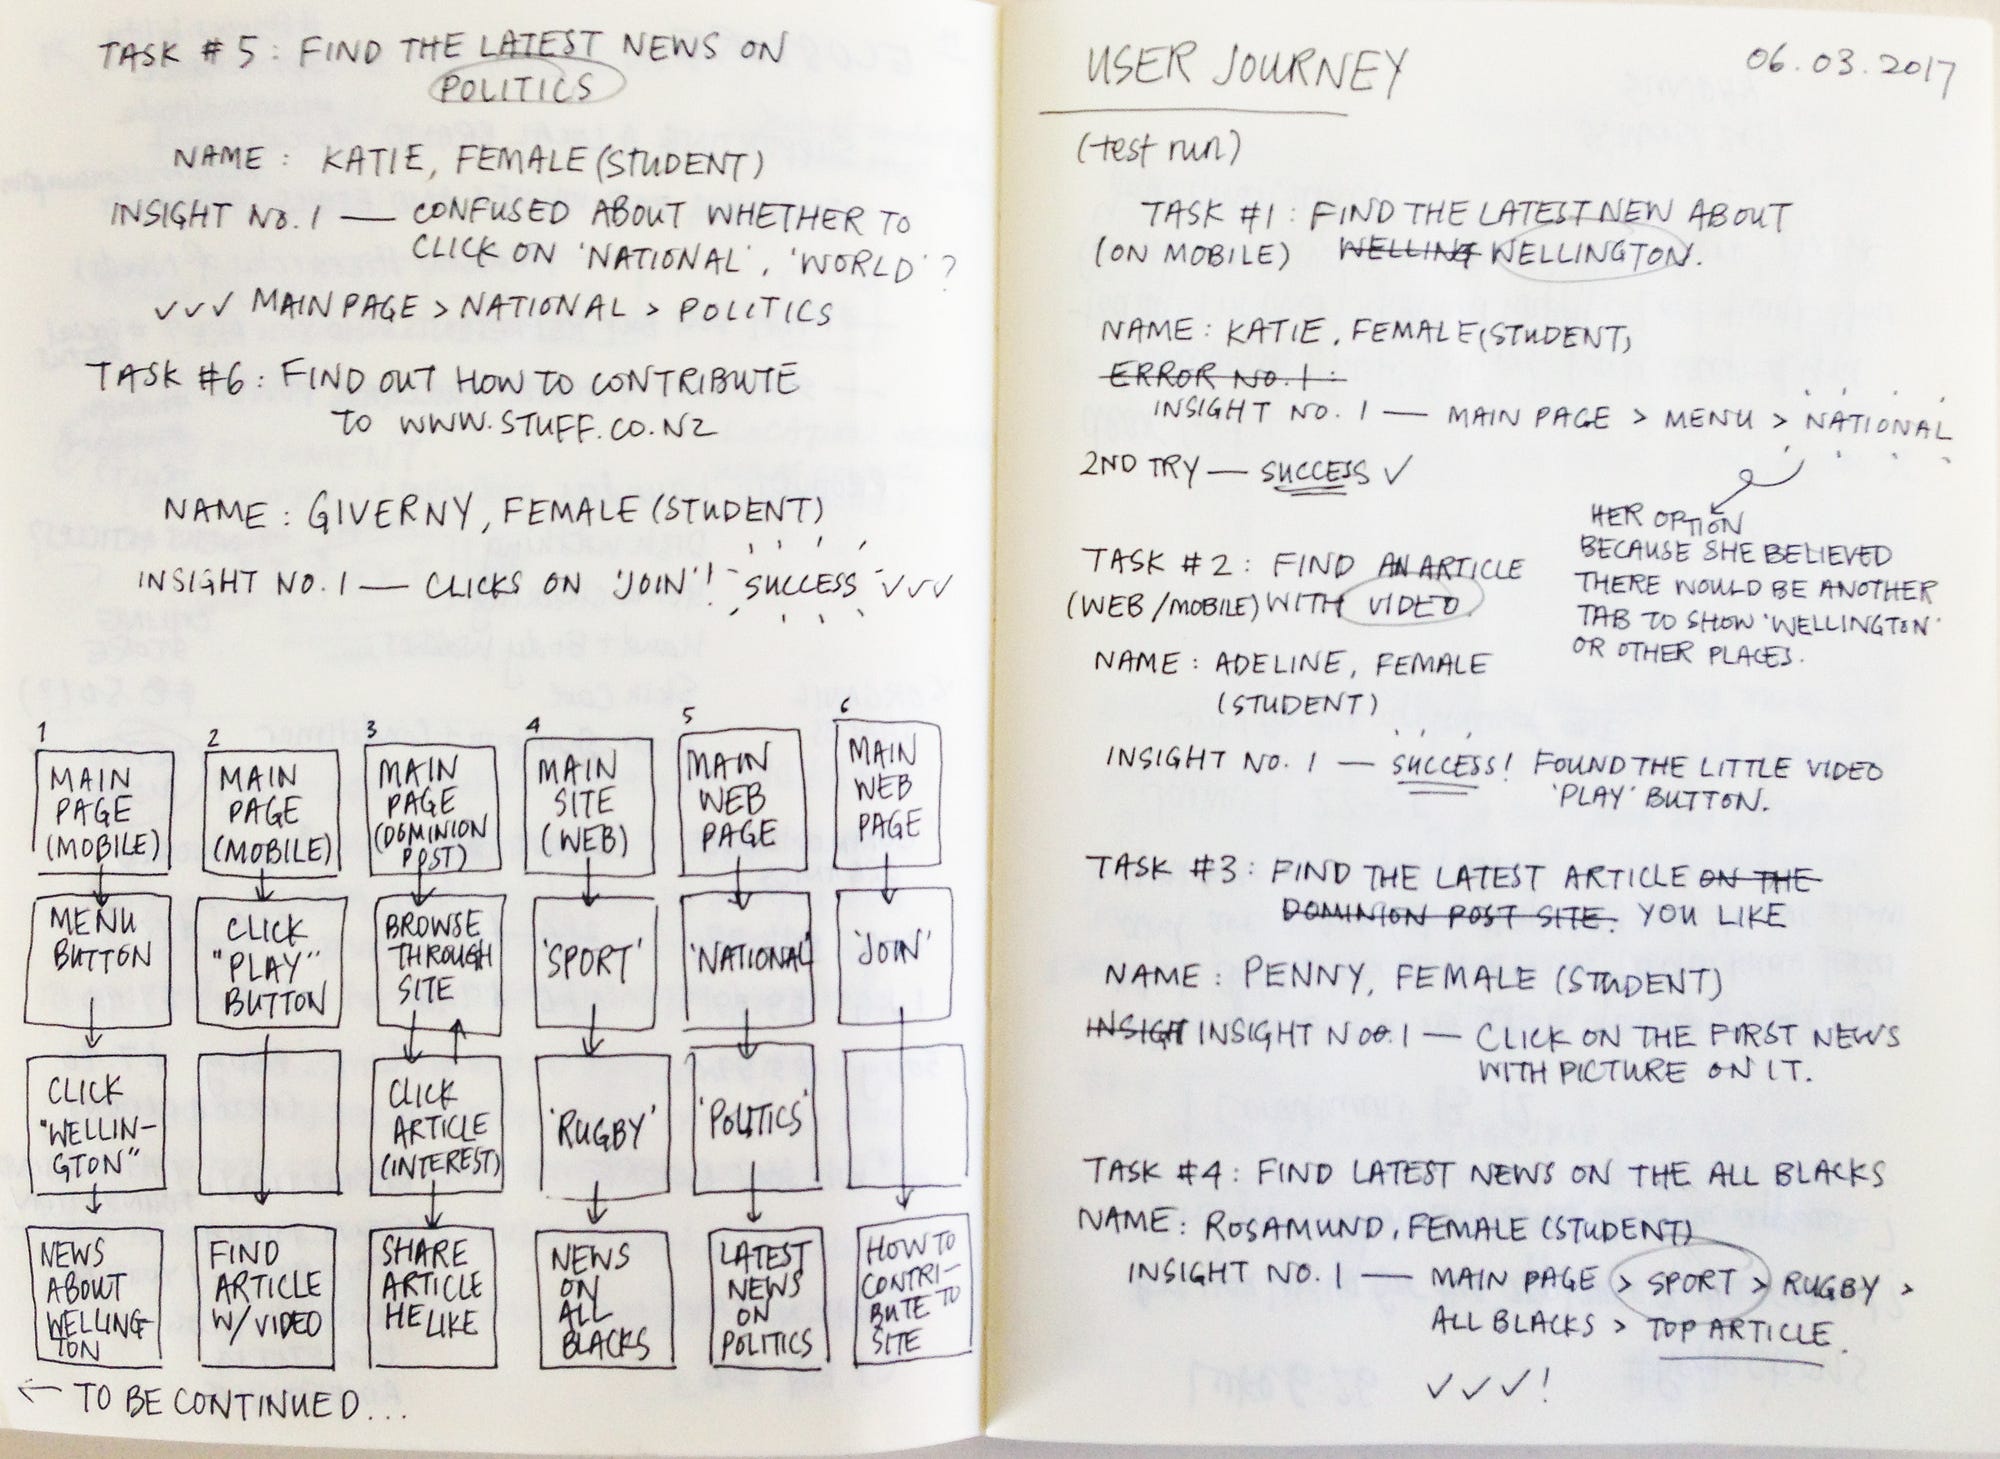 TASK # 5 : FIND THE LATEST NEWS ON
POLITICS
NAME : KATIE, FEMALE (STUDENT)
INSIGHT NO. 1 — CONFUSED ABOUT WHETHER TO
CLICK ON 'NATIONAL', 'WORLD' ?
✓✓✓ MAIN PAGE > NATIONAL > POLITICS
TASK #6 : FIND OUT HOW TO CONTRIBUTE
TO WWW.STUFF.CO.NZ
NAME : GIVERNY, FEMALE (STUDENT)
INSIGHT NO. 1 — CLICKS ON 'JOIN'! SUCCESS ✓✓✓
1
MAIN
PAGE
(MOBILE)
MENU
BUTTON
CLICK
"WELLIN-
GTON"
NEWS
ABOUT
WELLING-
TON
2
MAIN
PAGE
(MOBILE)
CLICK
"PLAY"
BUTTON
FIND
ARTICLE
W/ VIDEO
3
MAIN
PAGE
(DOMINION
POST)
BROWSE
THROUGH
SITE
CLICK
ARTICLE
(INTEREST)
SHARE
ARTICLE
HE LIKE
4
MAIN
SITE
(WEB)
'SPORT'
'RUGBY'
NEWS
ON
ALL
BLACKS
5
MAIN
WEB
PAGE
'NATIONAL'
'POLITICS'
LATEST
NEWS
ON
POLITICS
6
MAIN
WEB
PAGE
'JOIN'
HOW TO
CONTRI-
BUTE TO
SITE
← TO BE CONTINUED...
USER JOURNEY
06.03.2017
(test run)
TASK #1 : FIND THE LATEST NEW ABOUT
(ON MOBILE) WELLING WELLINGTON.
NAME : KATIE, FEMALE (STUDENT)
ERROR NO. 1 :
INSIGHT NO. 1 — MAIN PAGE > MENU > NATIONAL
2ND TRY — SUCCESS ✓
HER OPTION
BECAUSE SHE BELIEVED
THERE WOULD BE ANOTHER
TAB TO SHOW 'WELLINGTON'
OR OTHER PLACES.
TASK # 2 : FIND AN ARTICLE
(WEB / MOBILE) WITH VIDEO
NAME : ADELINE, FEMALE
(STUDENT)
INSIGHT NO. 1 — SUCCESS! FOUND THE LITTLE VIDEO
'PLAY' BUTTON.
TASK #3 : FIND THE LATEST ARTICLE ON THE
DOMINION POST SITE. YOU LIKE
NAME : PENNY, FEMALE (STUDENT)
INSIGH INSIGHT NO. 1 — CLICK ON THE FIRST NEWS
WITH PICTURE ON IT.
TASK #4 : FIND LATEST NEWS ON THE ALL BLACKS
NAME : ROSAMUND, FEMALE (STUDENT)
INSIGHT NO. 1 — MAIN PAGE > SPORT > RUGBY >
ALL BLACKS > TOP ARTICLE.
✓✓✓!